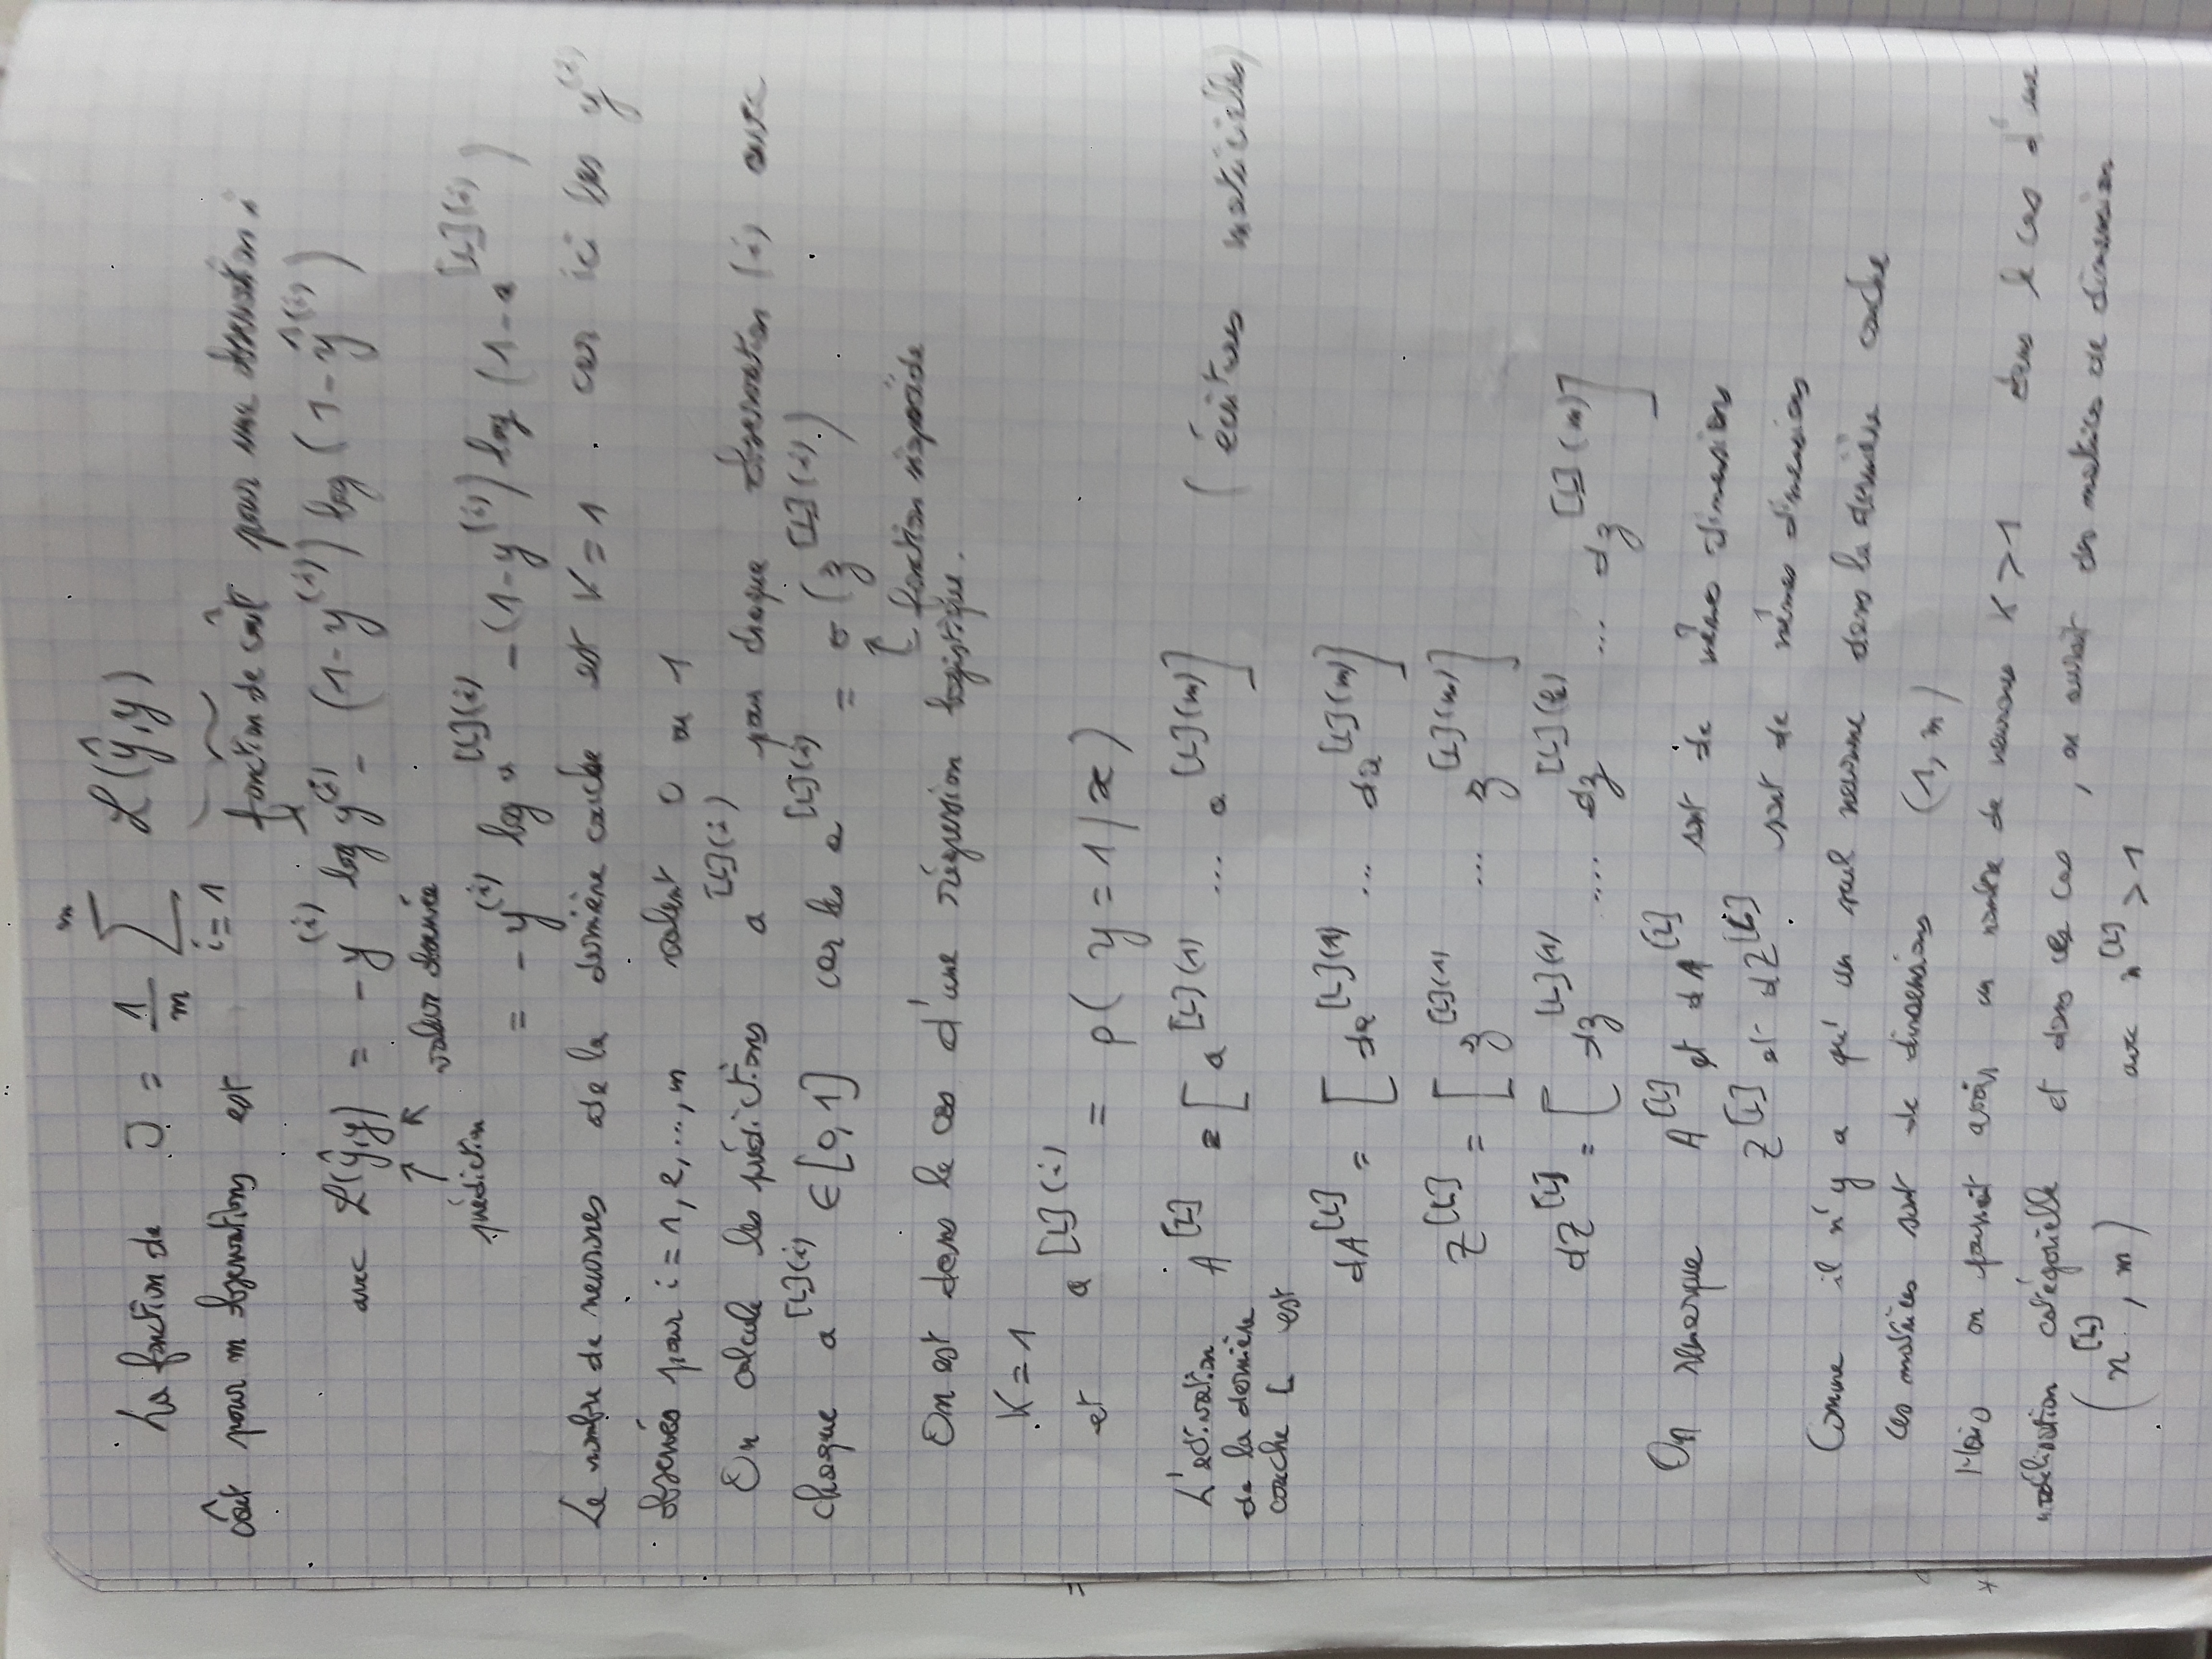 La fonction de J = 1/m ∑_{i=1}^{m} L(ŷ,y)
Coût pour m observations est
fonction de coût pour une observation i
avec L(ŷ,y) = - y^(i) log y^(i) - (1-y^(i)) log (1-ŷ^(i))
prédiction
valeur donnée
= - y^(i) log a^[L](i) - (1-y^(i)) log (1-a^[L](i))
Le nombre de neurones de la dernière couche est K=1 car ici les y^(i)
observés pour i=1,2,...,m valent 0 ou 1
On calcule les prédictions a^[L](i) pour chaque observation (i) avec
chaque a^[L](i) ∈ [0,1] car les a^[L](i) = σ(z^[L](i))
↑ fonction sigmoïde
On est dans le cas d'une régression logistique.
K=1
et a^[L](i) = p(y=1/x)
L'activation A^[L] = [a^[L](1) ... a^[L](m)] (écritures matricielles)
de la dernière
couche L est
dA^[L] = [da^[L](1) ... da^[L](m)]
Z^[L] = [z^[L](1) ... z^[L](m)]
dZ^[L] = [dz^[L](1) .... dz^[L](k) ... dz^[L](m)]
On remarque A^[L] et dA^[L] sont de même dimensions
Z^[L] et dZ^[L] sont de mêmes dimensions
Comme il n'y a qu'un seul neurone dans la dernière couche
ces matrices sont de dimensions (1,m)
Mais on pourrait avoir un nombre de neurones K>1 dans le cas d'une
modélisation catégorielle et dans ce cas, on aurait des matrices de dimension
(n^[L], m) avec n^[L] > 1